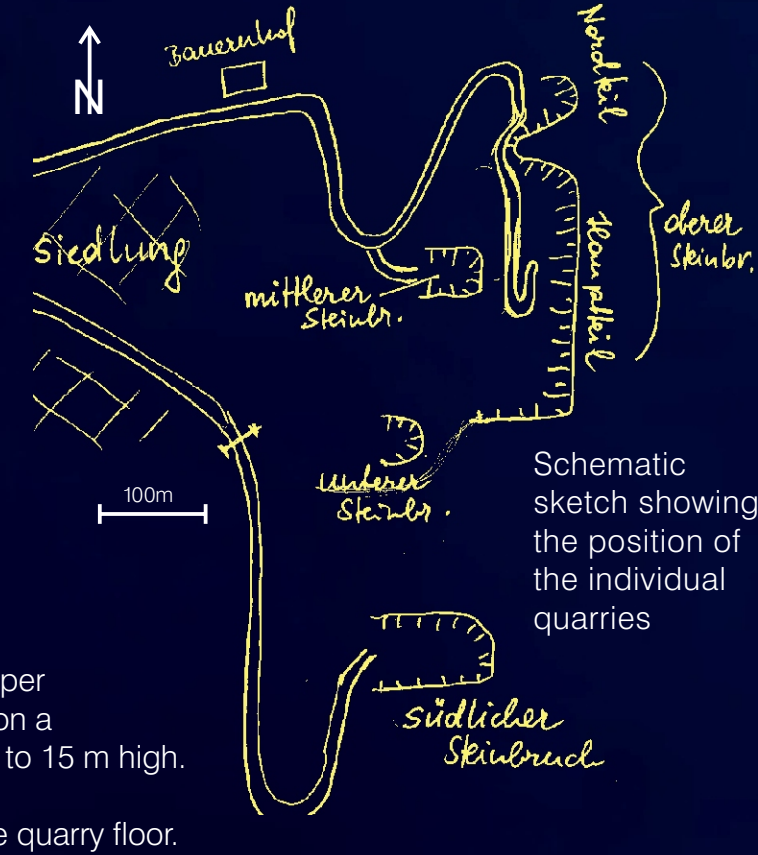 N
Bauernhof
Nordteil
Siedlung
oberer
Steinbr.
Hauptteil
mittlerer
Steinbr.
100m
unterer
Steinbr.
Schematic
sketch showing
the position of
the individual
quarries
südlicher
Steinbruch
per
on a
to 15 m high.
e quarry floor.